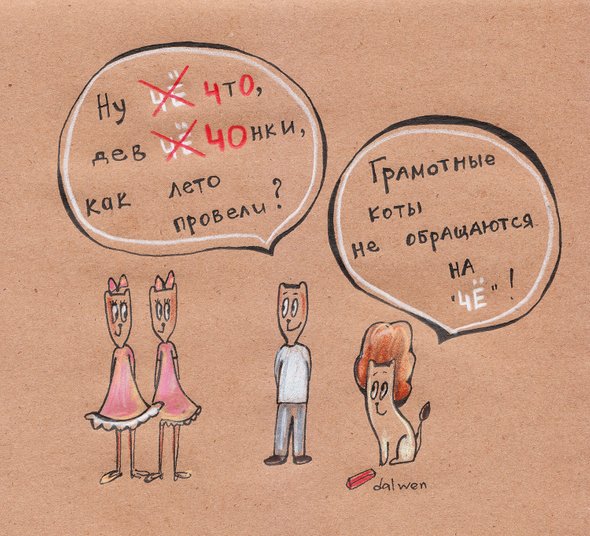 Ну чё что,
дев чё чонки,
как лето
провели?
Грамотные
коты
не обращаются
на
"чё"!
dalwen